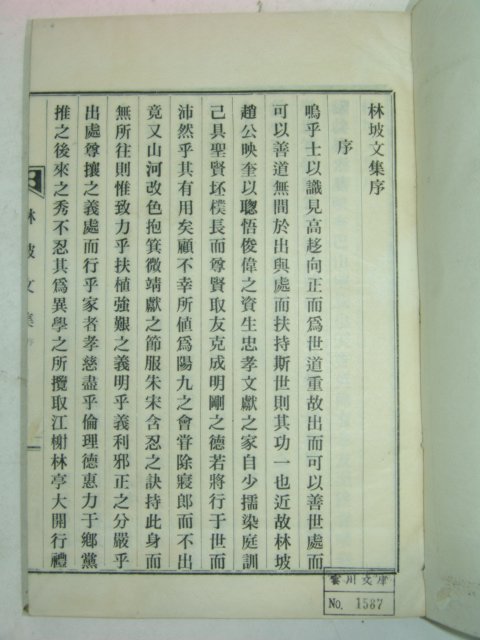 林坡文集序
序
嗚乎士以識見高趍向正而爲世道重故出而可以善世處而
可以善道無間於出與處而扶持斯世則其功一也近故林坡
趙公映奎以聰悟俊偉之資生忠孝文獻之家自少擩染庭訓
己具聖賢坯樸長而尊賢取友克成明剛之德若將行于世而
沛然乎其有用矣顧不幸所値爲陽九之會甞除寢郎而不出
竟又山河改色抱箕微靖獻之節服朱宋含忍之訣持此身而
無所往則惟致力乎扶植強艱之義明乎義利邪正之分嚴乎
出處尊攘之義處而行乎家者孝慈盡乎倫理德惠力于鄉黨
推之後來之秀不忍其爲異學之所攬取江榭林亭大開行禮
林坡文集
序
雲川文庫
No. 1587